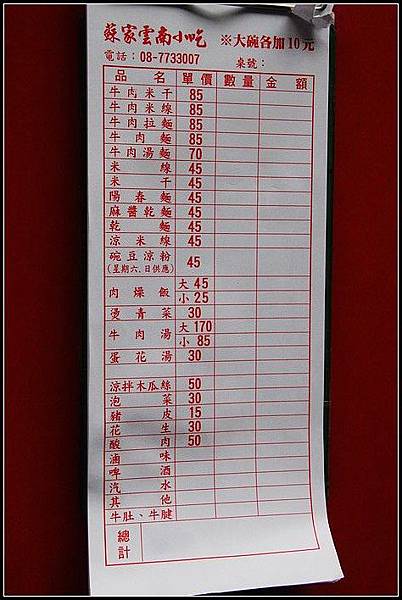 蘇家雲南小吃 ※大碗各加10元
電話：08-7733007 桌號：
品名 單價 數量 金額
牛肉米干 85
牛肉米線 85
牛肉拉麵 85
牛肉麵 85
牛肉湯麵 70
米線 45
米干 45
陽春麵 45
麻醬乾麵 45
乾麵 45
涼米線 45
碗豆涼粉 45
(星期六.日供應)
肉燥飯 大 45
小 25
燙青菜 30
牛肉湯 大 170
小 85
蛋花湯 30
涼拌木瓜絲 50
泡菜 30
豬皮 15
花生 30
酸肉 50
滷味
啤酒
汽水
其他
牛肚、牛腱
總計